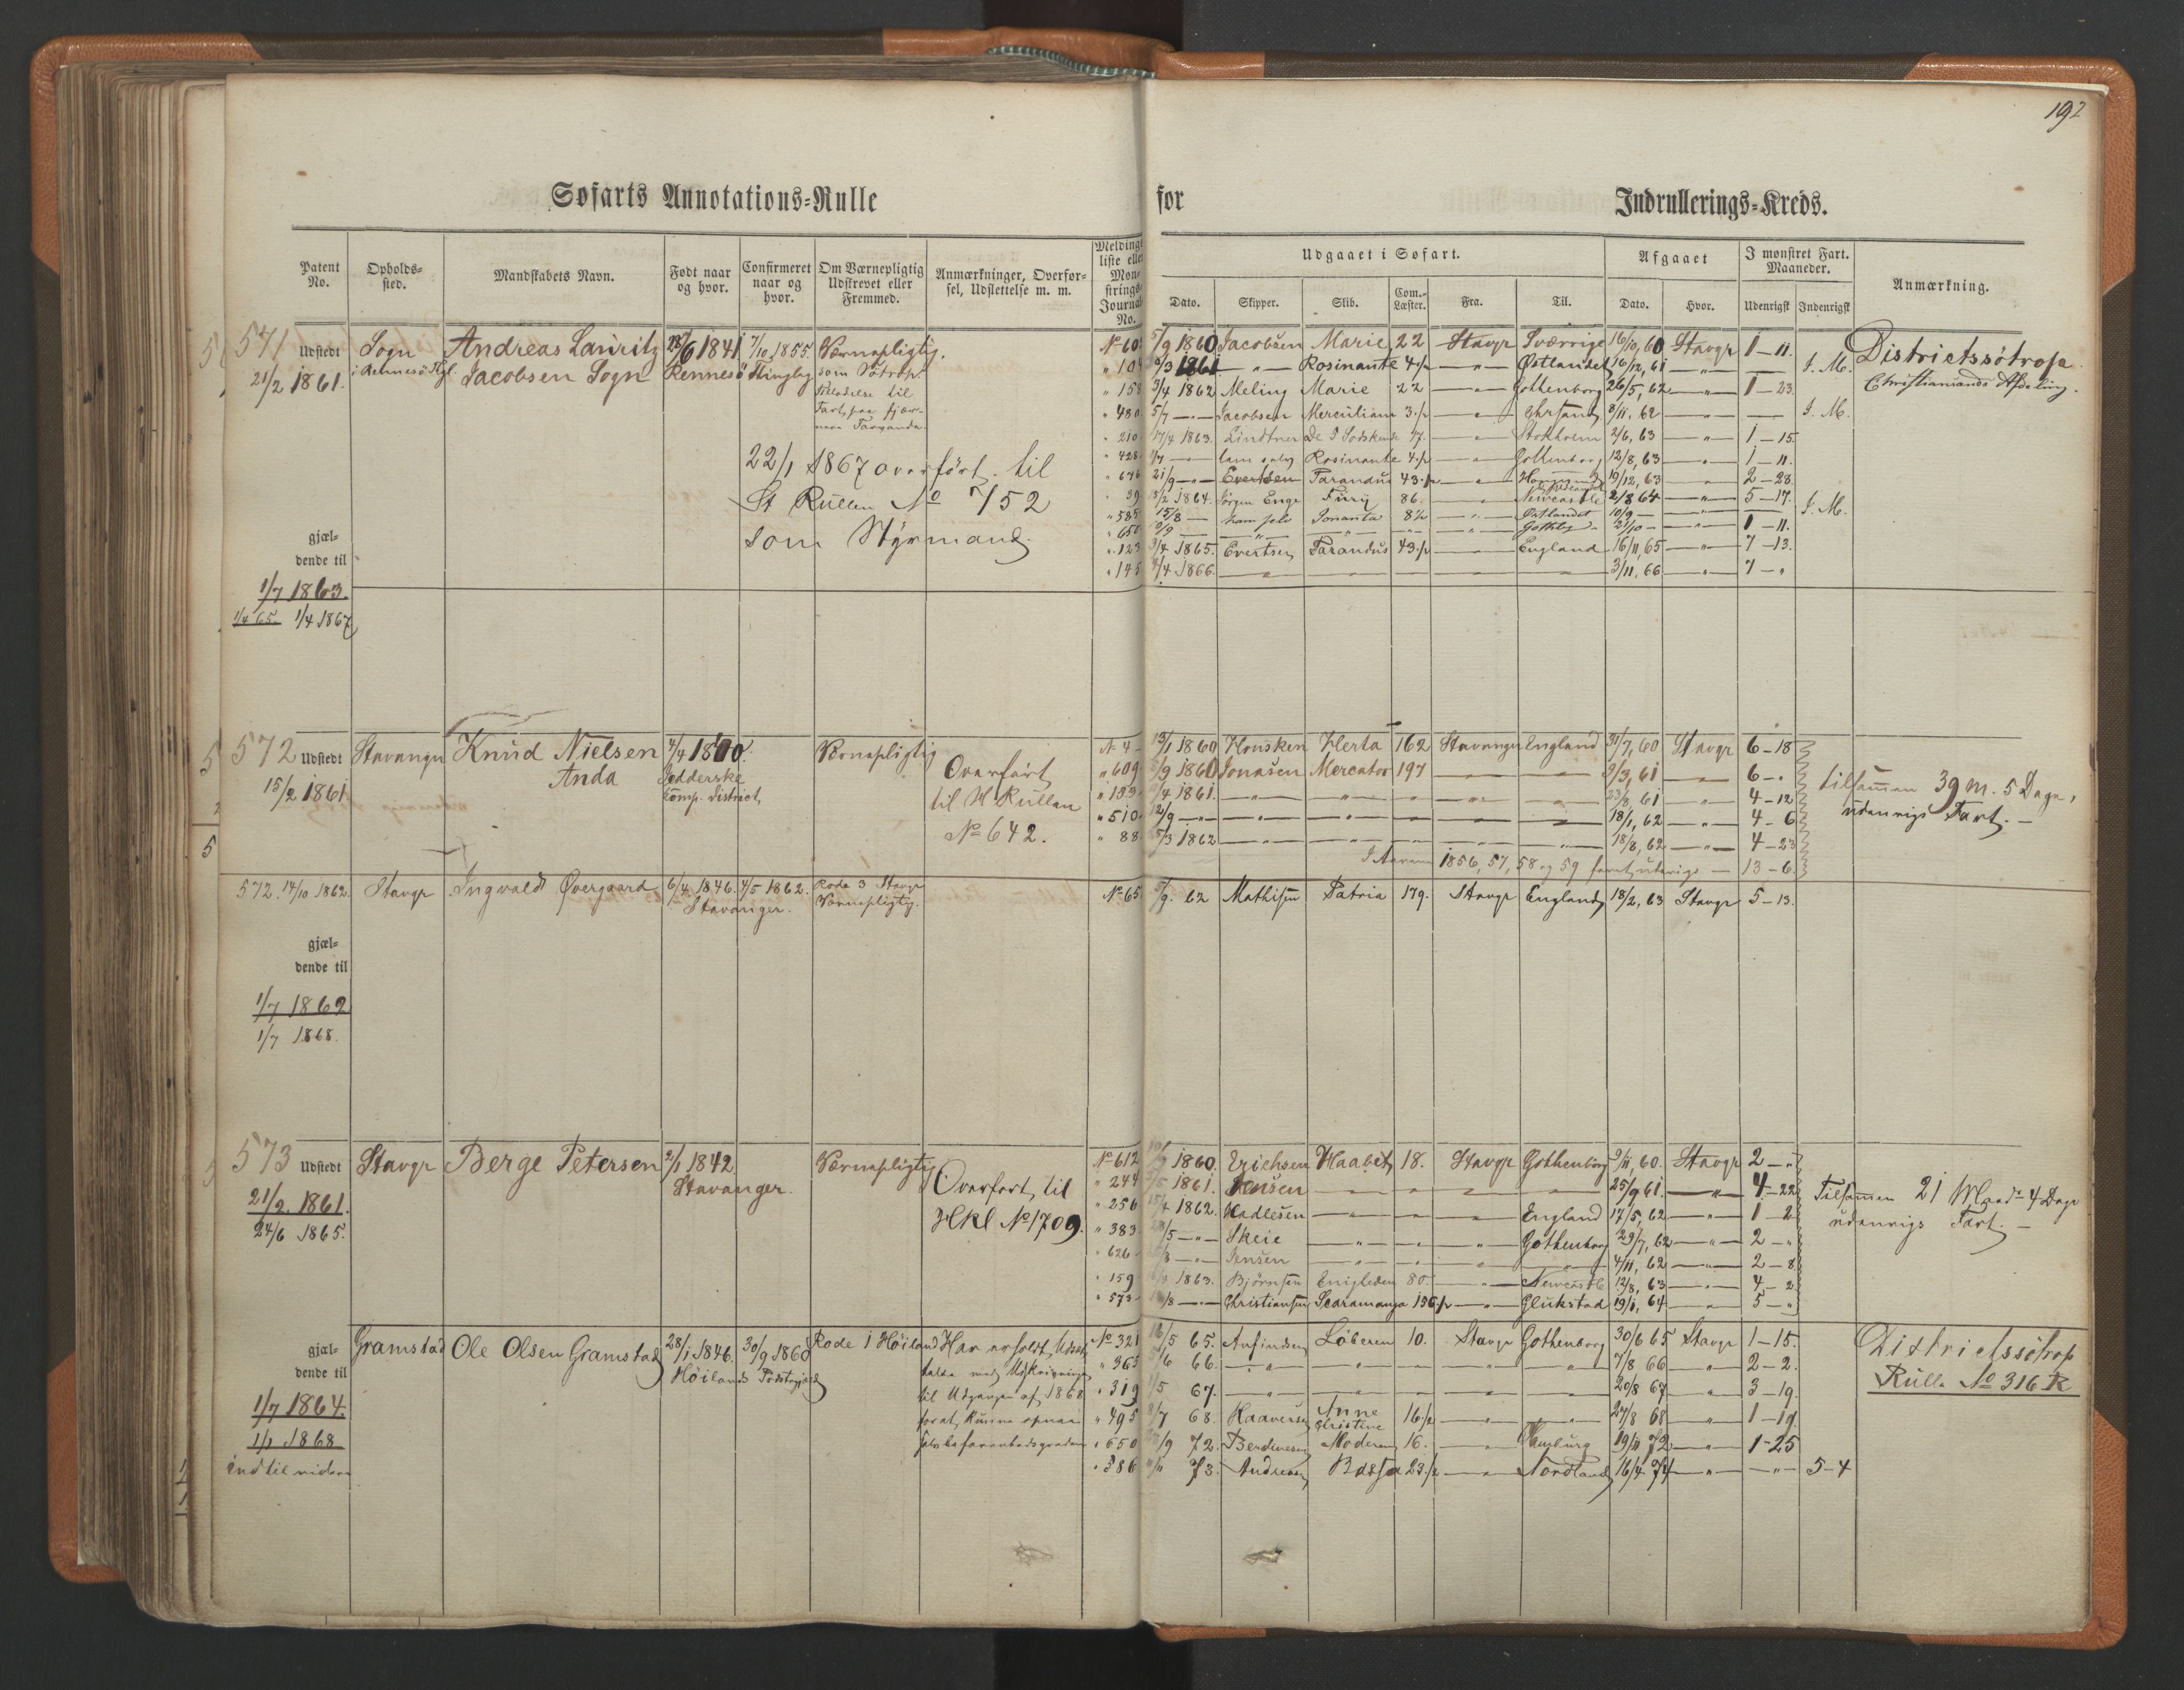 192
Søfarts Annotations-Rulle for Indrullerings-Kreds.
Patent No.
Opholds-sted.
Mandskabets Navn.
Født naar og hvor.
Confirmeret naar og hvor.
Om Værnepligtig Udskrevet eller Fremmed.
Anmærkninger, Overførsel, Udslettelse m. m.
Meldings liste eller Mønstrings Journal No.
Udgaaet i Søfart.
Dato. Skipper. Skib. Com.-Læster. Fra. Til.
Afgaaet
Dato. Hvor.
I mønstret Fart. Maaneder.
Udenrigst Indenrigst
Anmærkning.
571 Udstedt
21/2 1861.
Sogn
i Rennesö
Andreas Lauritz
Jacobsen Sogn
28/6 1841
Rennesö
7/10 1855.
Værnepligtig.
som Søtrop.
22/1 1867 overført til
St Rullen No 752
som Styrmand.
gjæl-
dende til
1/7 1863.
1/4 65. 1/4 1867
5/9 1860 Jacobsen Marie 22 Stavgr Sverrige 16/10, 60 Stavgr 1 – 11.
1861 — " — Rosinante 4 — " — Østlandet 16/12, 61 — " — I. M.
3/4 1862 Meling Marie 22 — " — Gothenborg 26/5, 62 — " — 1 – 23.
" 480 5/7 — " — Jacobsen 3 — " — Chrsand 8/11, 62 — " — I. M.
" 210 17/4 1863. Lindtner 17. — " — Stokholm 2/6, 63 — " — 1 – 15.
" 428 Rosinante 4 — " — Gothenborg 12/8, 63 — " — 1 – 11.
" 646 21/9 — " — Evertsen Farandus 43 — " — 19/12, 63 — " — 2 – 28.
" 39 1864. Enge Furij 86. — " — Newcastle 2/8 64 — " — 5 – 17. I. M.
" 585 15/8 — Jonanta 8½ — " — Østlandet 10/9 — — " —
" 650 — " — Gothbg 21/10 — — " — 1 – 11.
" 123 3/4 1865. Evertsen Farandus 43 — " — England 16/11, 65 — " — 7 – 13.
" 145 1866. — " — — " — — " — 3/11, 66 — " — 7 – "
Districtssötrop.
Christiansands Afdeling.
572 Udstedt
15/2 1861
Stavanger
Knud Nielsen
Anda
4/4 1840.
Comp. District.
Værnepligtig
Overført
til H Rullen
No 642.
No 4 1860 Housken Herta 162 Stavanger England 31/7, 60 Stavgr 6 – 18
" 609 1860 Jonasen Mercator 197 — " — — " — 9/3, 61 — " — 6 – "
" 189 1861. — " — — " — 23/8, 61 — " — 4 – 12
" 510 12/9 — " — — " — 18/1, 62 — " — 4 – 6
" 88 1862 — " — — " — 18/8, 62 — " — 4 – 23
I Aarene 1856, 57, 58 og 59 faret udenrigs — 13 – 6.
tilsammen 39 M. 5 Dage,
udenrigs Fart. —
572. 14/10 1862. Stavgr Ingvald Øvergaard 6/4 1846.
Stavanger.
4/5 1862.
Rode 3 Stavgr
Værnepligtig.
No 65 62 Mathisen Patria 179. Stavgr England 18/2, 63 Stavgr 5 – 13.
gjæl-
dende til
1/7 1862
1/7 1868.
573 Udstedt
21/2. 1861.
24/6 1865.
Stavgr
Berge Petersen
2/1 1842
Stavanger.
Værnepligtig
Overført til
Hkl No 1709.
No 612 1860. Erichsen Haabet 18. Stavgr Gothenborg 9/11, 60. Stavgr 2 – "
" 244 1861. Jensen — " — 25/9 61. — " — 4 – 22
" 256 1862. Hadlesen — " — England 17/5, 62 — " — 1 – 2
" 383 — " — Skeie — " — Gothenborg 29/7, 62 — " — 2 – "
" 626 — " — Jensen — " — 4/11, 62 — " — 2 – 8
" 159 1863. Bjørnsen Enigheden 80. — " — Newcastle 12/8, 63 — " — 4 – 2
" 573 — " — Christiansen Scaramanga 136½ — " — Glükstad 19/1, 64 — " — 5 – "
Tilsammen 21 Maad. 4 Dage
udenrigs Fart. —
gjæl-
dende til
1/7 1864.
1/1 1868
indtil videre
Gramstad
Ole Olsen Gramstad
28/1 1846.
Høilands Præstegjæld
30/9 1860
Rode 1 Høiland
Har erholdt Udsæt-
telse med Udskrivning
til Udgangen af 1868
No 321 16/5 65. Anfindsen Løberen 10. Stavgr Gothenborg 30/6 65 Stavgr 1 – 15.
" 363 66. — " — 7/8 66 — " — 2 – 2.
" 319 67. — " — 20/8 67 — " — 3 – 19.
" 495 68. Haaversen Anne Christine 16½ — " — 27/8 68 — " — 1 – 19.
" 650 72. Berdinesen Moderen 16. — " — Hamburg 19/11 72 — " — 1 – 25
" 886 73. Andreasen 23½ — " — Nordland 16/4 74 — " — 5 – 4
Districtssøtrop
Rulle No 316 R